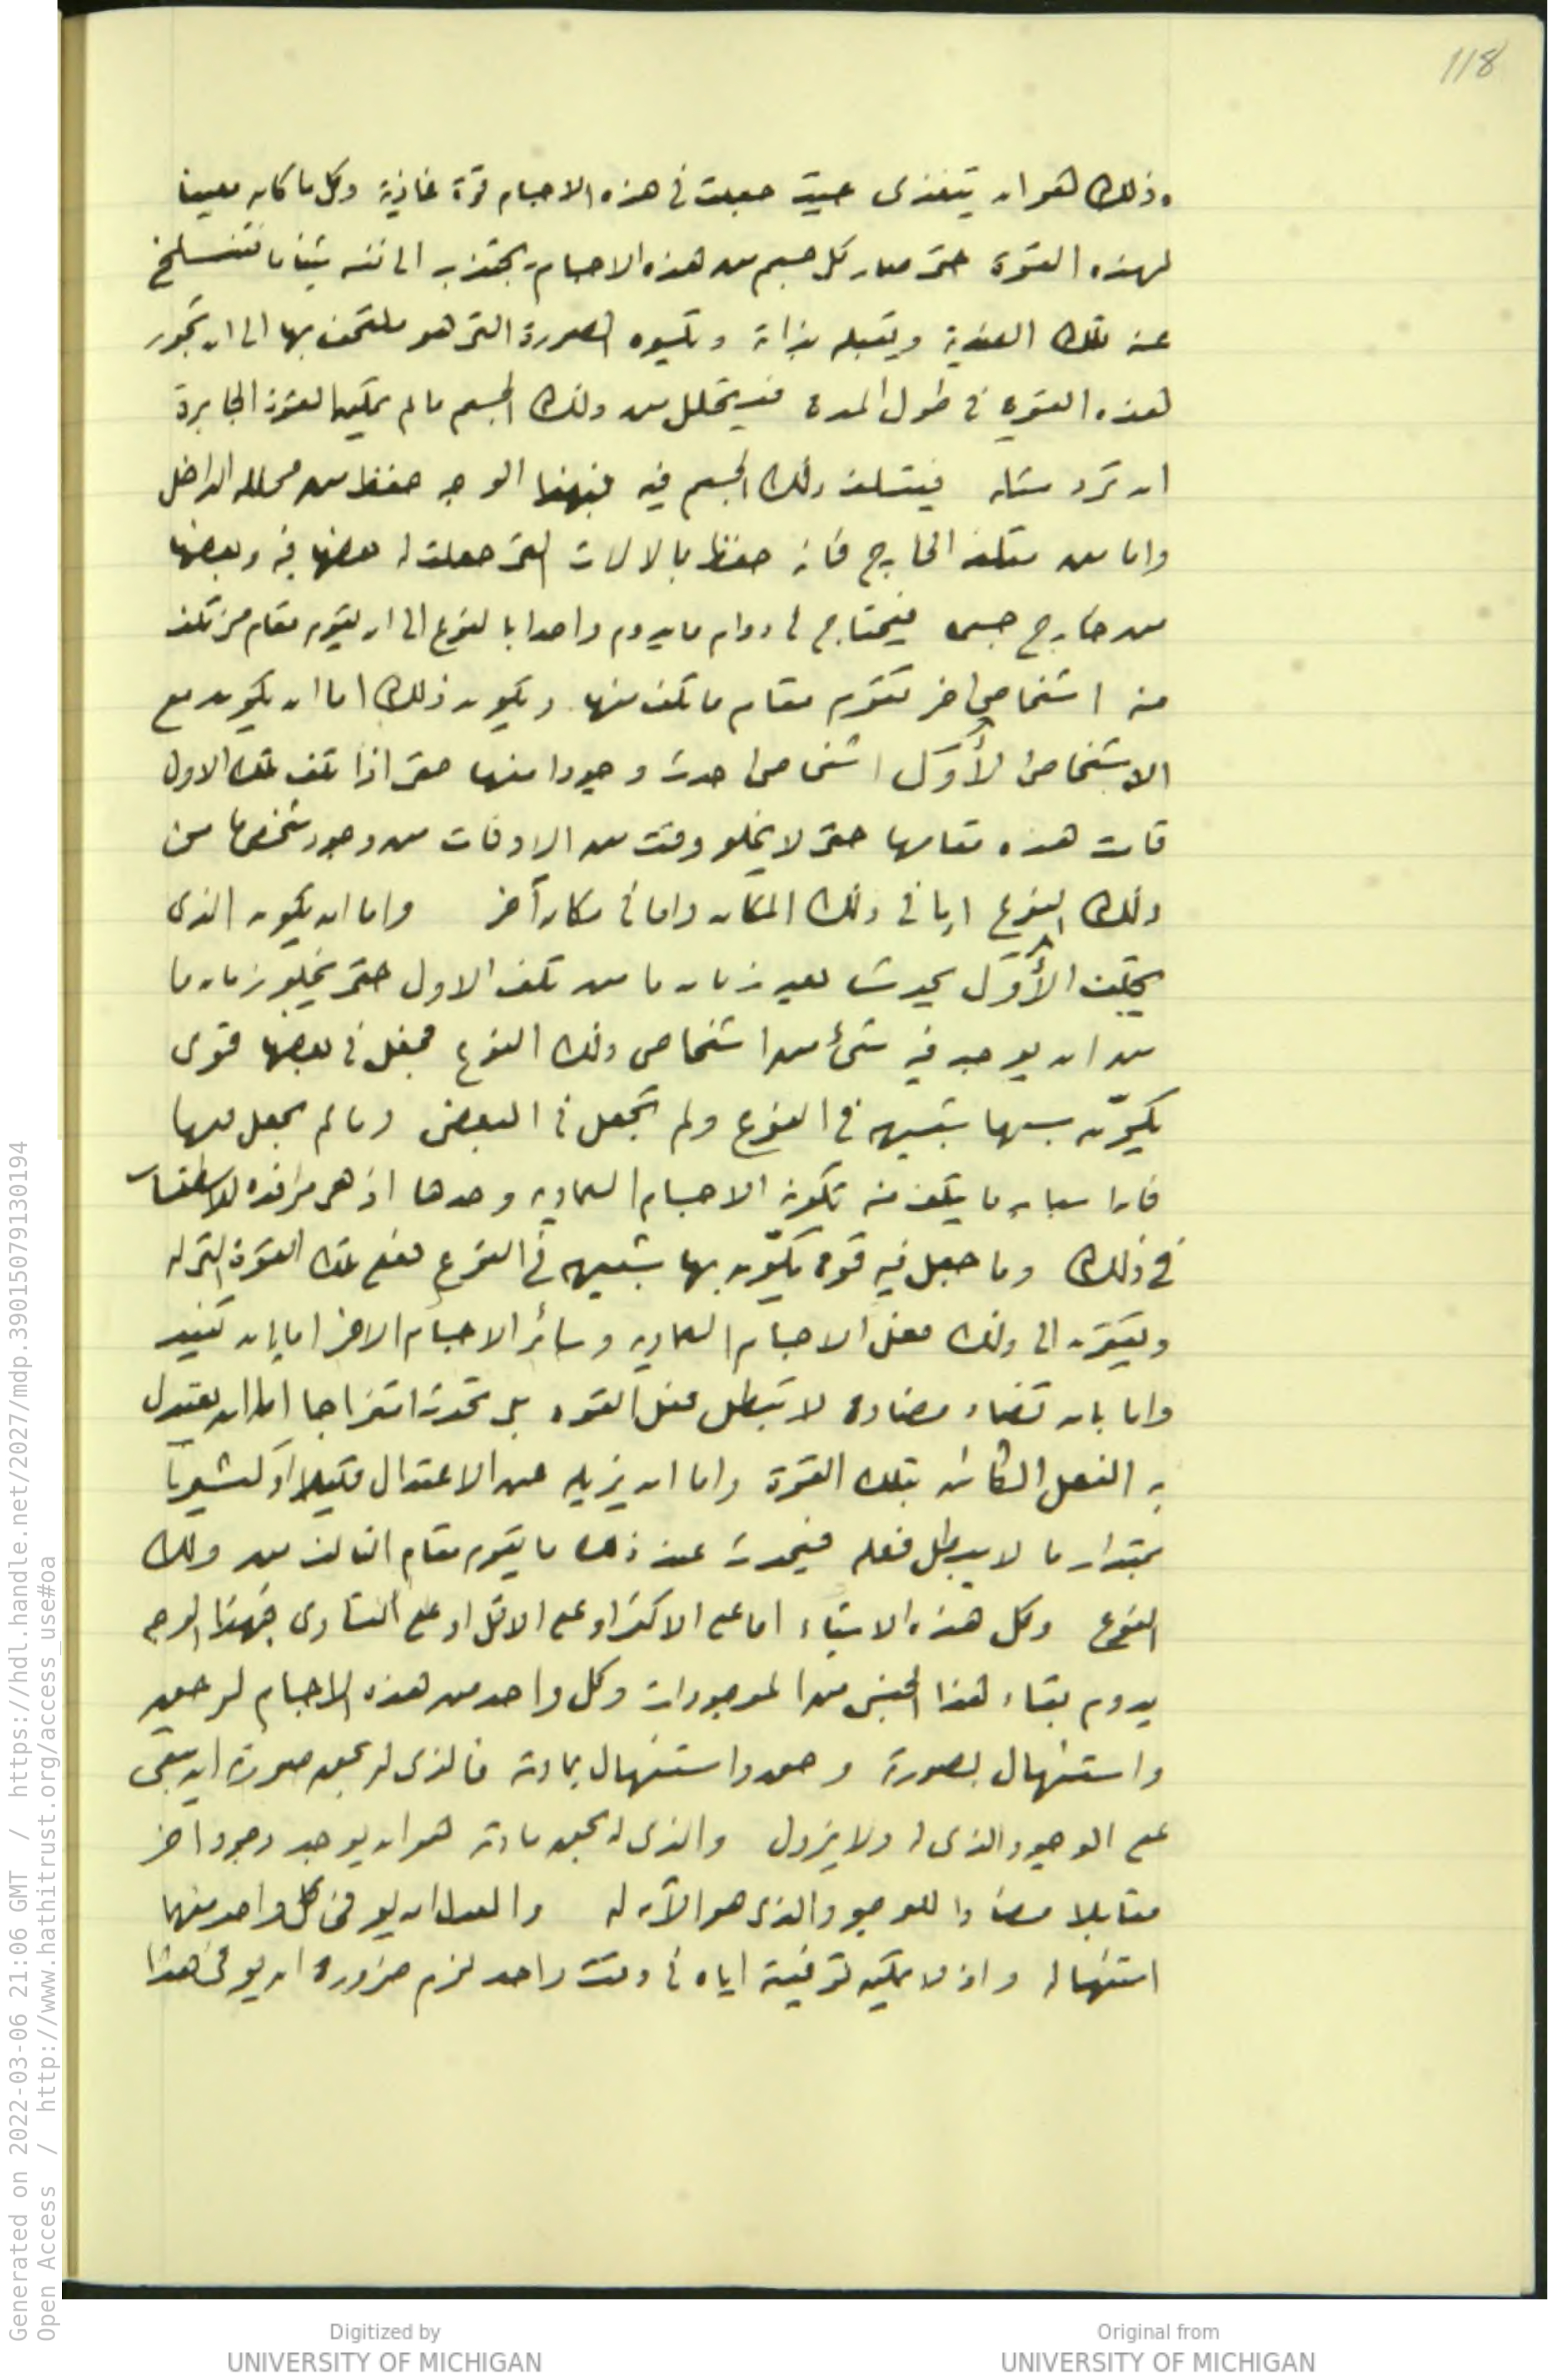 118
وذلك هو ان يتغذى حيث جعلت فى هذه الاجسام قوة غاذية وكل ما كان معينا
لهذه القوة حتى صار كل جسم من هذه الاجسام يجتذب الى نفسه شيئا ما فتنسلخ
عنه تلك الضدية ويقبله بذاته ويكسوه الصورة التى هو ملتحف بها الى ان تخور
هذه القوة فى طول المدة فيتحلل من ذلك الجسم ما لم يمكن القوة الجابرة
ان ترد مثله فيتلف ذلك الجسم فيه فبهذا الوجه حفظ من محلله الداخل
واما من متلفه الخارج فانه حفظ بالالات التى جعلت له بعضها فيه وبعضها
من خارج جسمه فيحتاج فى دوام ما يدوم واحدا بالنوع الى ان يقوم مقام من تلف
منه اشخاص اخر تقوم مقام ما تلف منها ويكون ذلك اما ان يكون مع
الاشخاص الأوَل اشخاص احدث وجودا منها حتى اذا تلف تلك الاول
قامت هذه مقامها حتى لا يخلو وقت من الاوقات من وجود شخص ما من
ذلك النوع اما فى ذلك المكان واما فى مكان آخر واما ان يكون الذى
يخلف الأوَل يحدث بعد زمان ما من تلف الاول حتى يخلو زمان ما
من ان يوجد فيه شئ من اشخاص ذلك النوع فجعل فى بعضها قوى
يكوّن بها شبيهه فى النوع ولم تجعل فى البعض وما لم يجعل فيها
فان اشباه ما يتلف منه تكونه الاجسام السماويه وحدها اذ هى مرافدة للاسطقسات
فى ذلك وما جعل فيه قوة يكوّن بها شبيهه فى النوع فعلى تلك القوة التى له
ويقترن الى ذلك فعل الاجسام السماويه وسائر الاجسام الاخر اما بان تفيد
واما بان تضاد مضادة لا تبطل فعل القوه بل تحدث امتزاجا اما ان يعتدل
به الفعل الكائن بتلك القوة واما ان يزيله عن الاعتدال قليلا او كثيرا
بمقدار ما لا يبطل فعله فيحدث عند ذلك ما يقوم مقام التالف من ذلك
النوع وكل هذه الاشياء اما على الاكثر او على الاقل او على التساوى فبهذا الوجه
يدوم بقاء هذا الجنس من الموجودات وكل واحد من هذه الاجسام له حق
واستئهال بصورته وحق واستئهال بمادته فالذى له بحق صورته ان يبقى
على الوجود الذى له ولا يزول والذى له بحق مادته هو ان يوجد وجودا اخر
مقابلا مضادا للوجود الذى هو الآن له والعدل ان يوفى كل واحد منها
استئهاله واذ لا يمكن توفيته اياه فى وقت واحد لزم ضرورة ان يوفى هذا
Generated on 2022-03-06 21:06 GMT / https://hdl.handle.net/2027/mdp.39015079130194
Open Access / http://www.hathitrust.org/access_use#oa
Digitized by
UNIVERSITY OF MICHIGAN
Original from
UNIVERSITY OF MICHIGAN